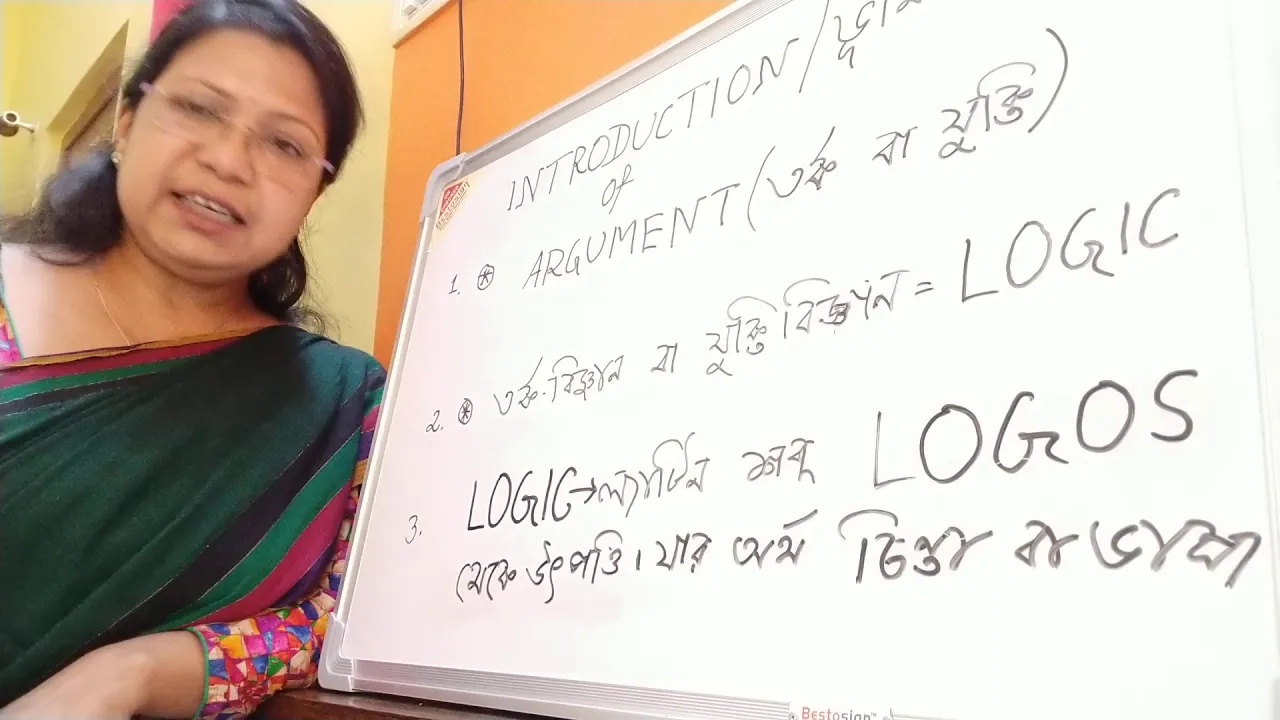 INTRODUCTION /
of
1. ⊛ ARGUMENT (তর্ক বা যুক্তি)
2. ⊛ তর্ক-বিজ্ঞান বা যুক্তিবিজ্ঞান = LOGIC
3. LOGIC→ল্যাটিন শব্দ LOGOS
থেকে উৎপত্তি। যার অর্থ চিন্তা বা ভাষা
Bestosign™